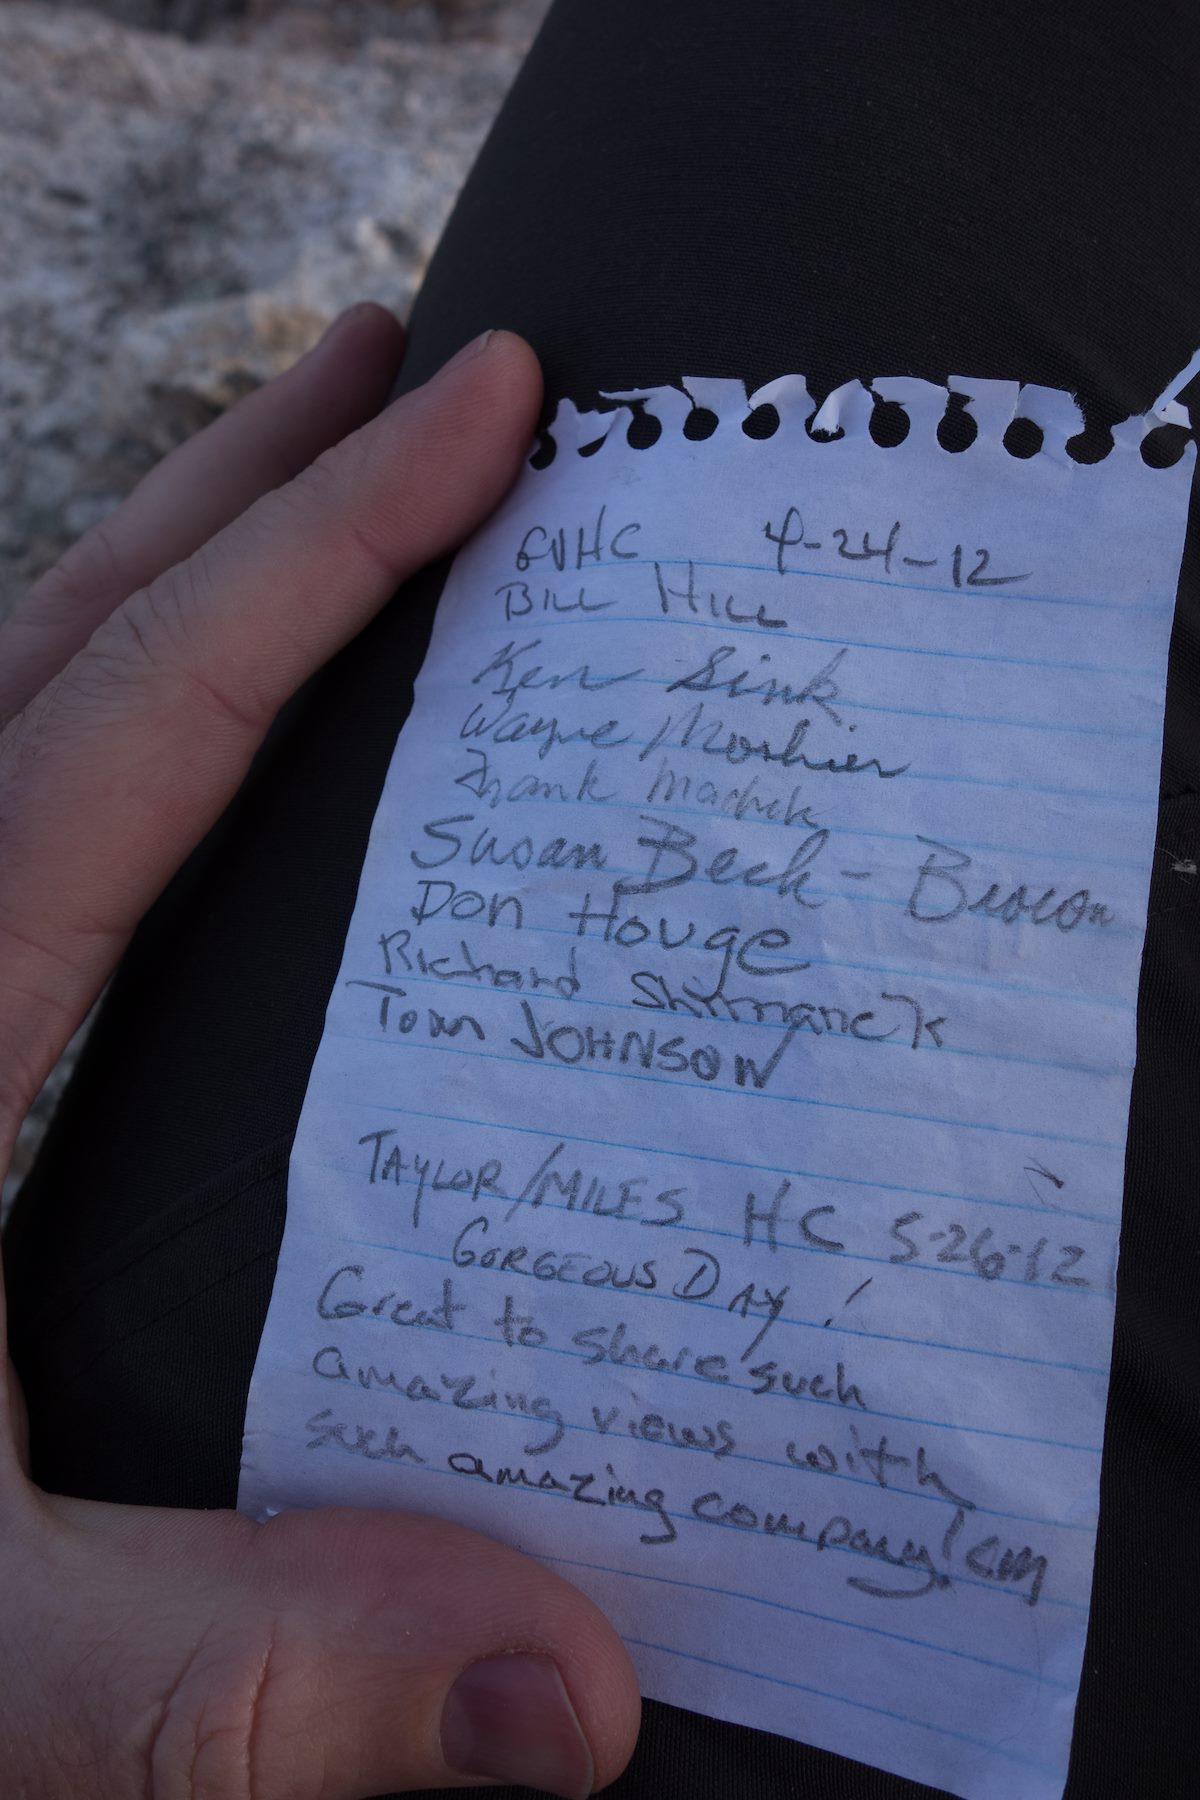 GVHC 4-24-12
BILL HILL
Ken Sink
Wayne Moshier
Frank
Susan Beck - Brocon
Don Houge
Richard Shrmanck
Tom JOHNSON
TAYLOR/MILES HC 5-26-12
GORGEOUS DAY!
Great to share such
amazing views with
such amazing company! CM